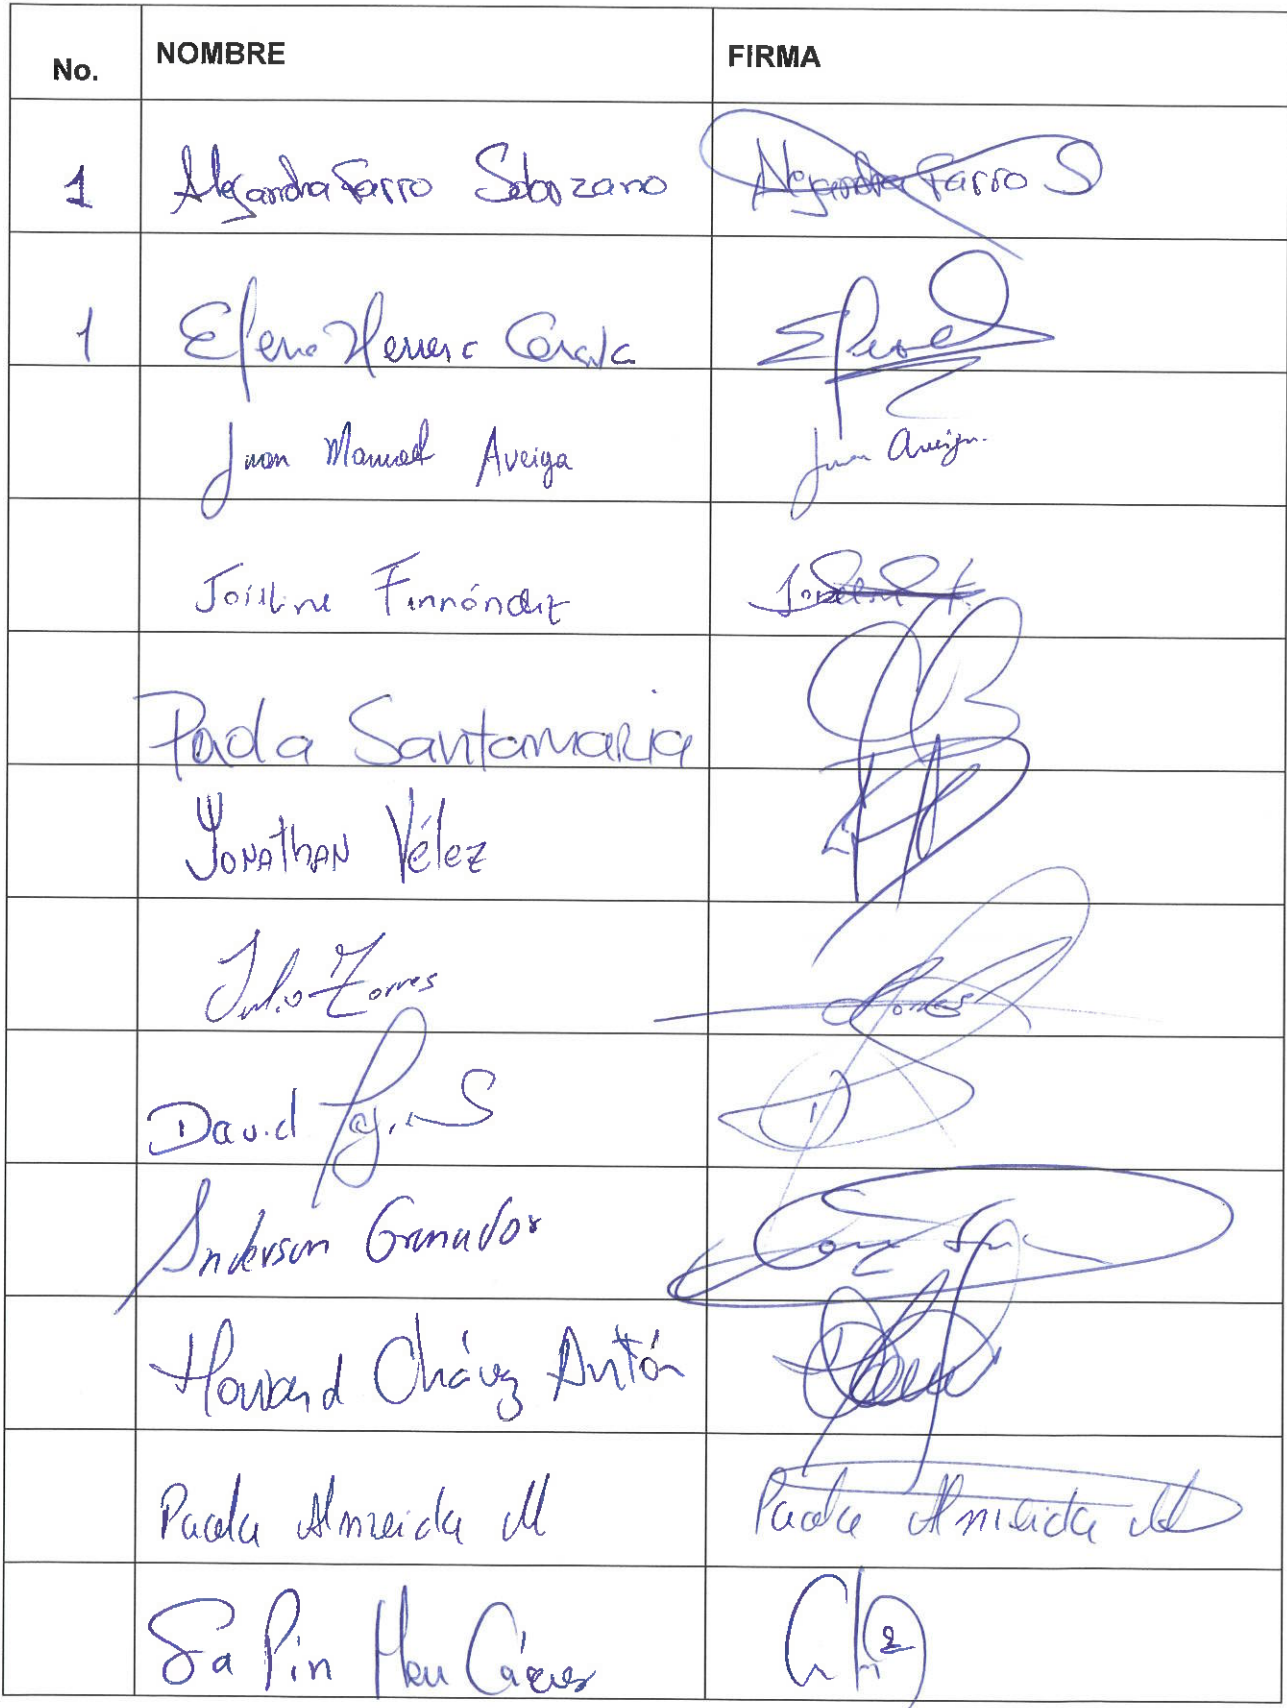 No. NOMBRE FIRMA
1 Alejandra Farro Solorzano Alejandra Farro S
1 Elena Herrera
Juan Manuel Aveiga Juan Aveiga
Joisline Fernández
Paola Santamaria
Jonathan Vélez
Julio Torres Torres
David
Anderson Granados
Howard Chávez Antón
Paola Almeida M Paola Almeida M
Sa Pin Cáceres